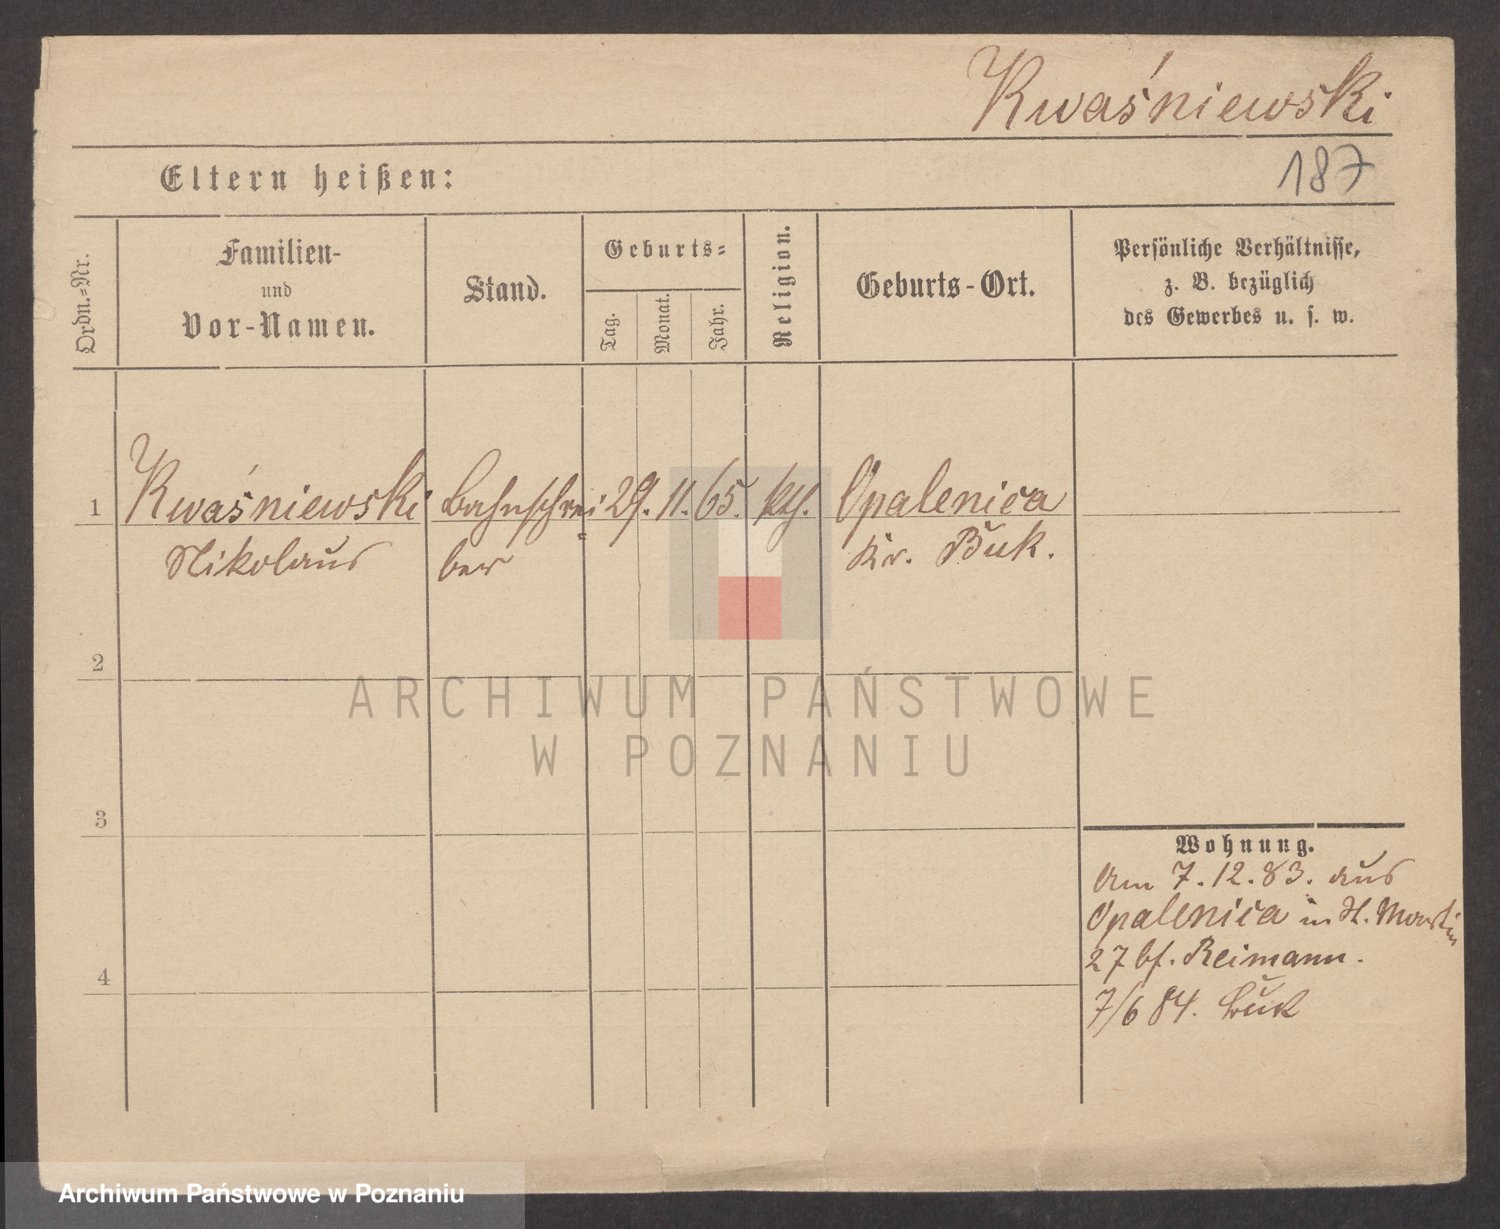 Kwaśniewski
187
Eltern heißen:
Ordn.-Nr.
Familien-
und
Vor-Namen.
Stand.
Geburts-
Tag.
Monat.
Jahr.
Religion.
Geburts-Ort.
Persönliche Verhältnisse,
z. B. bezüglich
des Gewerbes u. s. w.
1 Kwaśniewski Bahnschrei= 29. 11. 65. kth. Opalenica
Nikolaus ber Kr. Buk.
2
ARCHIWUM PAŃSTWOWE
W POZNANIU
3
Wohnung.
Am 7.12.83. aus
Opalenica in St. Martin
27 bf. Reimann.
4
7/6 84. Buk
Archiwum Państwowe w Poznaniu